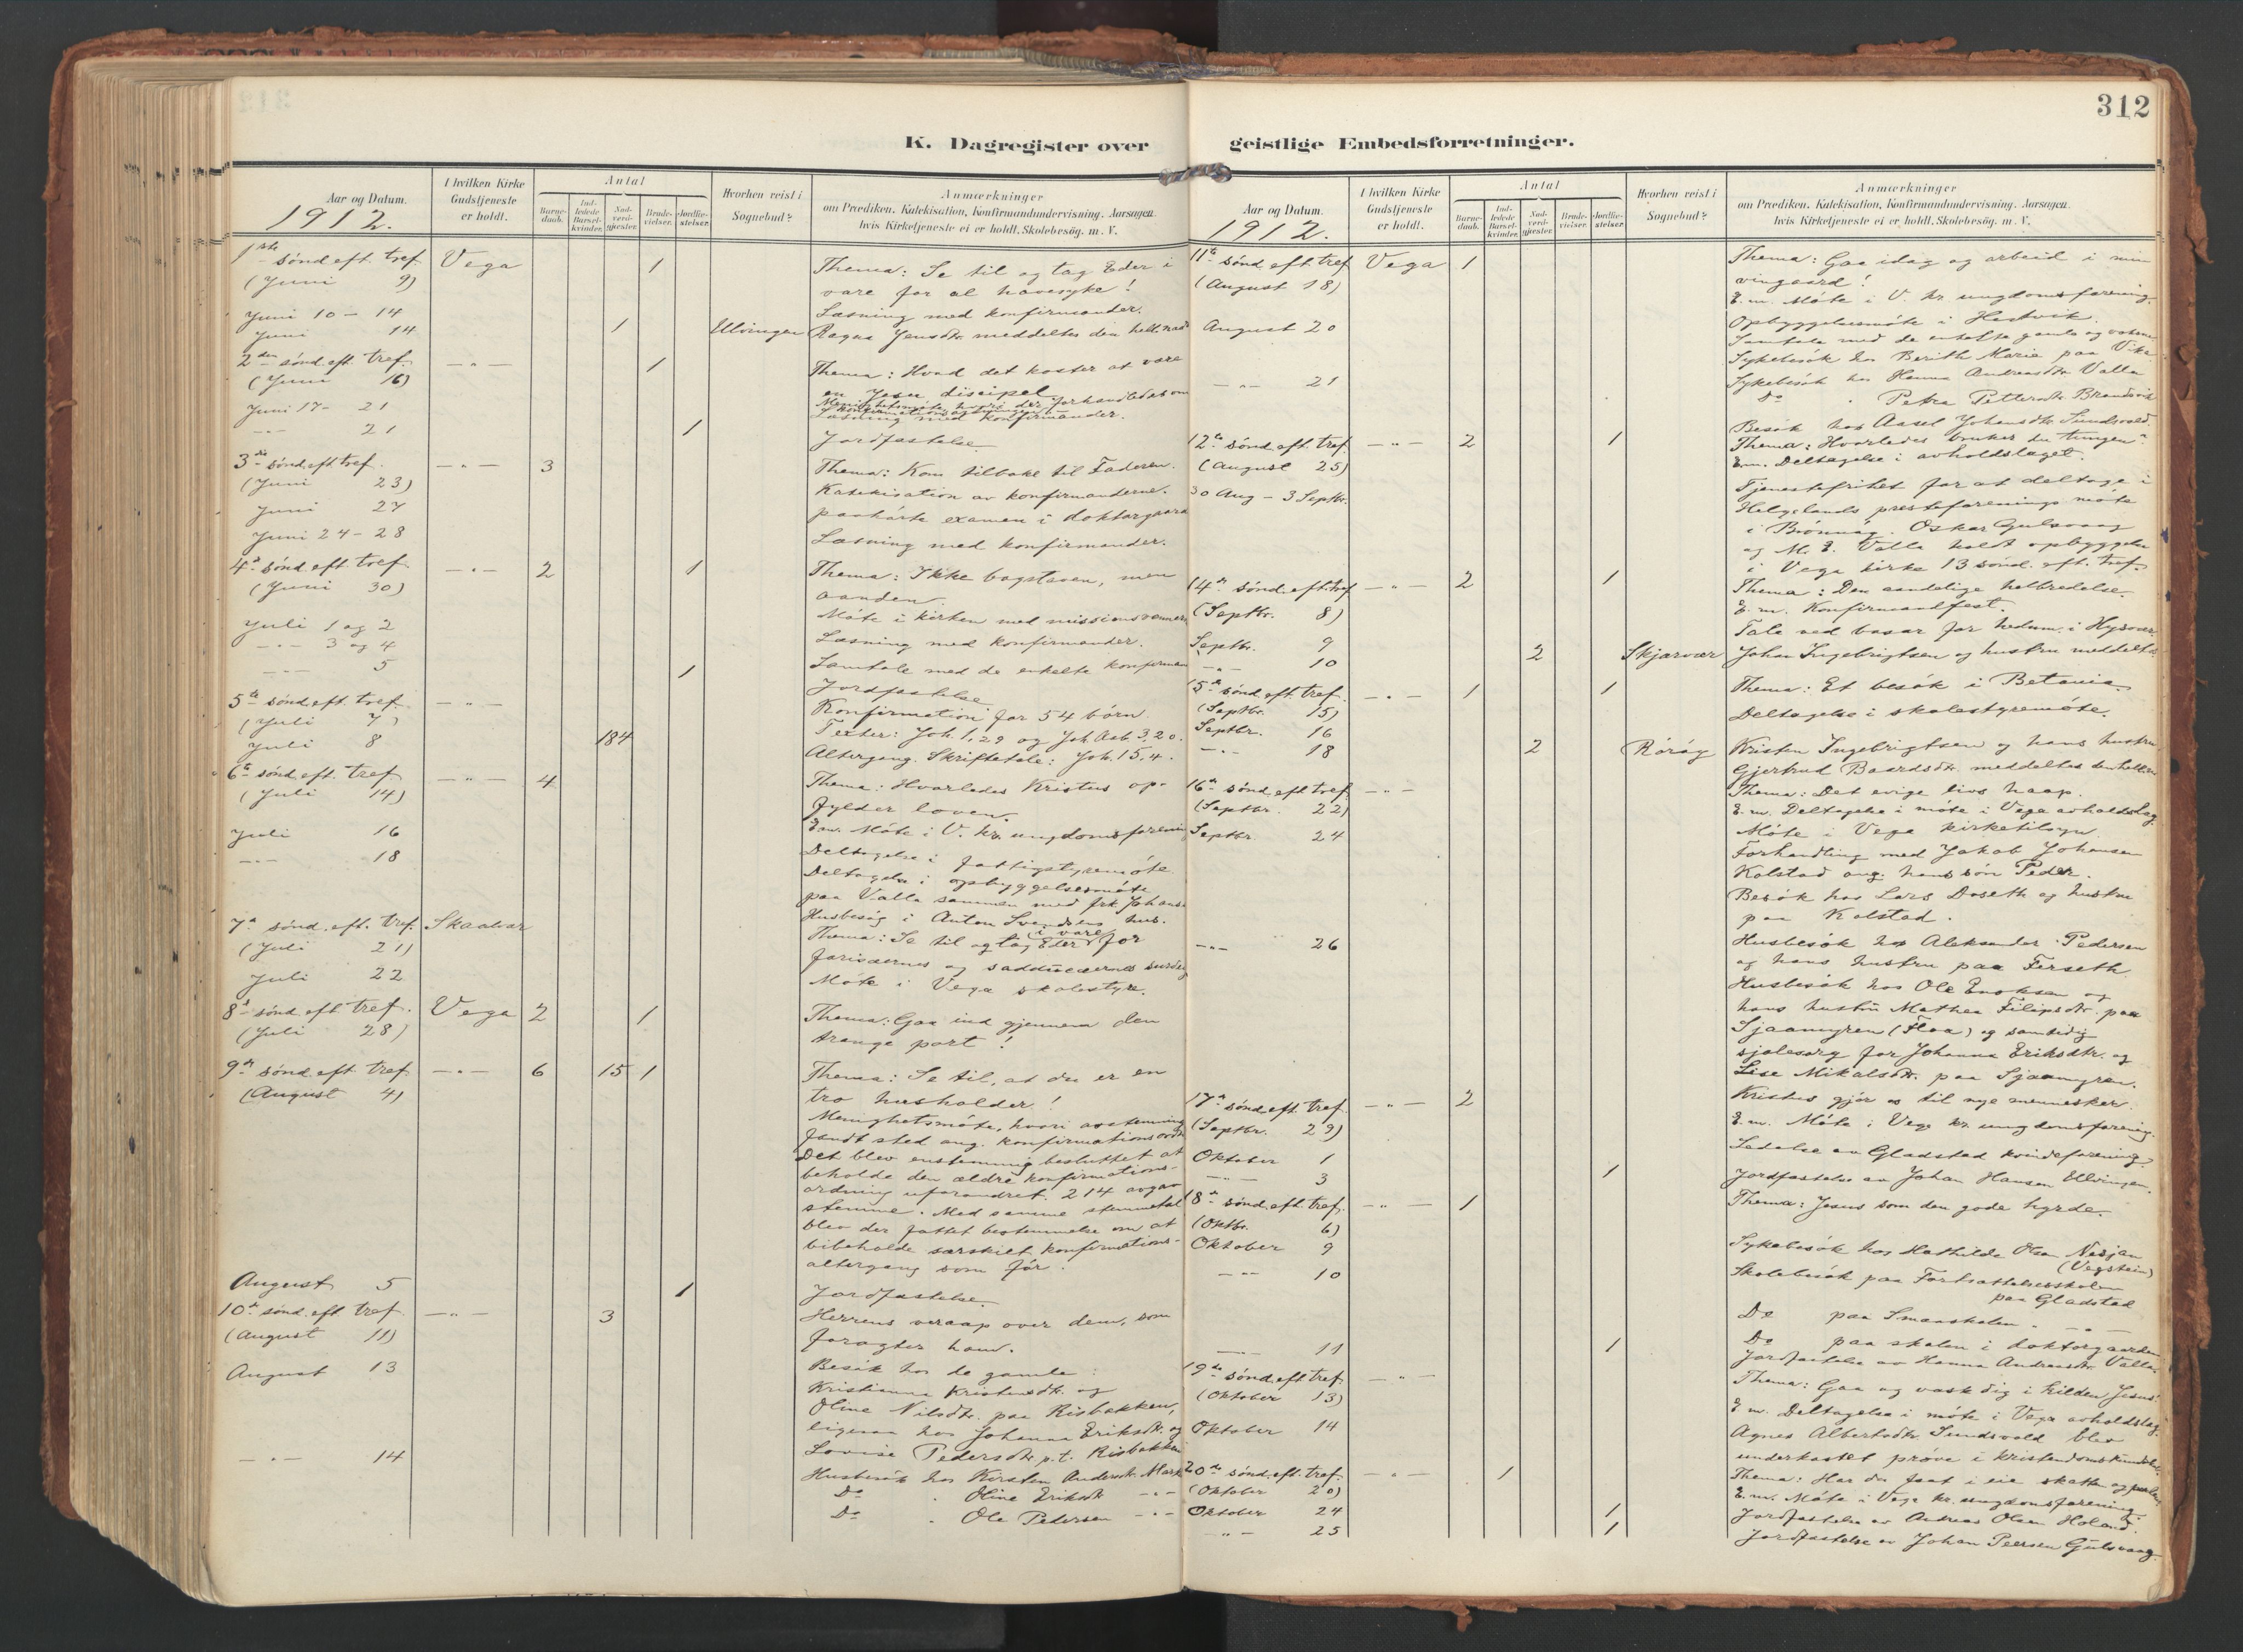 312
K. Dagregister over
Aar og Datum.
1912.
I hvilken Kirke Gudstjeneste er holdt.
Antal
Barne-daab.
Ind-ledede Barsel-kvinder.
Nad-verd-gjester.
Brude-vielser.
Jordfæ-stelser.
Hvorhen reist i Sognebud?
Anmærkninger
om Prædiken, Katekisation, Konfirmandundervisning. Aarsagen,
hvis Kirketjeneste ei er holdt, Skolebesög. m. V.
1ste sönd. eft. tref. Vega 1 Thema: Se til og tag Eder i
(Juni 9) vare for al havesyke!
Juni 10 - 14 Læsning med konfirmander.
Juni 14 1 Ulvingen Ragna Jensdtr. meddeltes den hell. nadv.
2den sönd. eft. tref. - " - 1 Thema: Hvad det koster at være
(Juni 16) en Jesu discipel.
Menighetsmöte, hvori der forhandledes om
konfirmations
Juni 17 - 21 Læsning med konfirmander.
- " - 21 1 Jordfæstelse.
3die sönd. eft. tref. - " - 3 Thema: Kom tilbake til Faderen.
(Juni 23) Katekisation av konfirmanderne.
Juni 27 paahörte examen i doktorgaard
Juni 24 - 28 Læsning med konfirmander.
4de sönd. eft. tref. - " - 2 1 Thema: Ikke bogstaven, men
(Juni 30) aanden.
Juli 1 og 2 Möte i kirken med missionsvenner
- " - 3 og 4 Læsning med konfirmander.
- " - 5 1 Samtale med de enkelte konfirman
Jordfæstelse.
5te sönd. eft. tref. - " - Konfirmation for 54 börn.
(Juli 7) Texter: Joh. 1,29 og Joh. Aab. 3,20.
Juli 8 184 Altergang. Skriftetale: Joh. 15,4.
6te sönd. eft. tref. - " - 4 Thema: Hvorledes Kristus op-
(Juli 14) fylder loven.
E.m. Möte i V. kr. ungdomsforening
Juli 16 Deltagelse i fattigstyremöte
- " - 18 Deltagelse i opbyggelsesmöte
paa Valla sammen med frk. Johans
Husbesög i Anton Svendsens hus.
7de sönd. eft. tref. Skaalvær Thema: Se til og tag Eder i vare for
(Juli 21) farisæernes og sadducæernes surdeig
Juli 22 Möte i Vega skolestyre.
8de sönd. eft. tref. Vega 2 1 Thema: Gaa ind gjennem den
(Juli 28) trange port!
9de sönd. eft. tref. - " - 6 15 1 Thema: Se til, at du er en
(August 4) tro husholder!
Menighetsmöte, hvori avstemning
fandt sted ang. konfirmationsordn
Det blev enstemmig besluttet at
beholde den ældre konfirmations-
ordning uforandret. 214 avgav
stemme. Med samme stemmetal
blev der fattet bestemmelse om at
bibeholde særskilt konfirmations-
altergang som för.
August 5 1 Jordfæstelse.
10de sönd. eft. tref. - " - 3 Herrens veraap over dem, som
(August 11) foragter ham.
August 13 Besök hos de gamle:
Kristianna Kristensdtr. og
Oline Nilsdtr. paa Risbakken,
ligesaa hos Johanna Eriksdtr. og
Lovise Pedersdtr. p.t. Risbakken
- " - 14 Husbesök hos Kirsten Andersdtr. Mark
Do " Oline Eriksdtr - " -
Do " Ole Pedersen - " -
geistlige Embedsforretninger.
Aar og Datum.
1912.
I hvilken Kirke Gudstjeneste er holdt.
Antal
Barne-daab.
Ind-ledede Barsel-kvinder.
Nad-verd-gjester.
Brude-vielser.
Jordfæ-stelser.
Hvorhen reist i Sognebud?
Anmærkninger
om Prædiken, Katekisation, Konfirmandundervisning. Aarsagen,
hvis Kirketjeneste ei er holdt, Skolebesög. m. V.
11te sönd. eft. tref. Vega 1 Thema: Gaa idag og arbeid i min
(August 18) vingaard!
E.m. Möte i V. kr. ungdomsforening.
August 20 Opbyggelsesmöte i Hestvik.
Samtale med de enkelte gamle og voksne
Sykebesök hos Berith Marie paa Vika
- " - 21 Sykebesök hos Hanna Andreasdtr. Valla
Do " Petra Pettersdtr. Brandsvik
Besök hos Aasel Johansdtr. Sundsvold.
12te sönd. eft. tref. - " - 2 1 Thema: Hvorledes bruker du tungen?
(August 25) E.m. Deltagelse i avholdslaget.
30 Aug - 3 Septbr. Tjenestefrihet for at deltage i
Helgelands presteforenings möte
i Brönnöy. Oskar Gulsvaag
og M. E. Valla holdt opbyggelse
i Vega kirke 13 sönd. eft. tref.
14de sönd. eft. tref. - " - 2 1 Thema: Den aandelige helbredelse.
(Septbr. 8) E.m. Konfirmandfest.
Septbr. 9 Tale ved basar for hedn. i Hysvær.
- " - 10 2 Skjærvær Johan Ingebrigtsen og hustru meddeltes
15de sönd. eft. tref. - " - 1 1 Thema: Et besök i Betania.
(Septbr. 15)
Septbr. 16 Deltagelse i skolestyremöte.
- " - 18 2 Röröy Kristen Ingebrigtsen og hans hustru
Gjertrud Baardsdtr. meddeltes den hell. n
16de sönd. eft. tref. - " - Thema: Det evige livs haap.
(Septbr. 22) E.m. Deltagelse i möte i Vega avholdslag.
Septbr. 24 Möte i Vega kirketilsyn.
Forhandling med Jakob Johansen
Kolstad ang. hans sön Peder.
Besök hos Lars Doseth og hustru
paa Kolstad.
- " - 26 Husbesök hos Aleksander Pedersen
og hans hustru paa Ferseth.
Husbesök hos Ole Enoksen og
hans hustru Mathea Filipsdtr. paa
Sjaamyren (Floa) og samtidig
sjælesorg for Johanna Eriksdtr. og
Lise Mikalsdtr. paa Sjaamyren.
17de sönd. eft. tref. - " - 2 Kristus gjör os til nye mennesker.
(Septbr. 29) E.m. Möte i Vega kr. ungdomsforening.
Oktober 1 Ledelse av Gladstad kvindeforening.
- " - 3 1 Jordfæstelse av Johan Hansen Ulvingen.
18de sönd. eft. tref. - " - 1 Thema: Jesus som den gode hyrde.
(Oktbr. 6)
Oktober 9 Sykebesök hos Mathilde Olsen Nesjan
(Vegstein)
- " - 10 Skolebesök paa Fortsættelsesskolen
paa Gladstad
Do paa Smaaskolen - " -
Do paa skolen i doktorgaarden
- " - 11 1 Jordfæstelse av Hanna Andreasdtr. Valla.
19de sönd. eft. tref. - " - Thema: Gaa og vask dig i kilden Jesus!
(Oktober 13) E.m. Deltagelse i möte i Vega avholdslag.
Oktober 14 Agnes Albertsdtr. Sundsvold blev
underkastet pröve i kristendomskundskab.
20de sönd. eft. tref. - " - 1 Thema: Har du faat i eie skatten og perlen?
(Oktober 20) E.m. Möte i Vega kr. ungdomsforening.
Oktober 24 1 Jordfæstelse av Andreas Olsen Holand.
- " - 25 1 Jordfæstelse av Johan Peersen Gulsvaag.